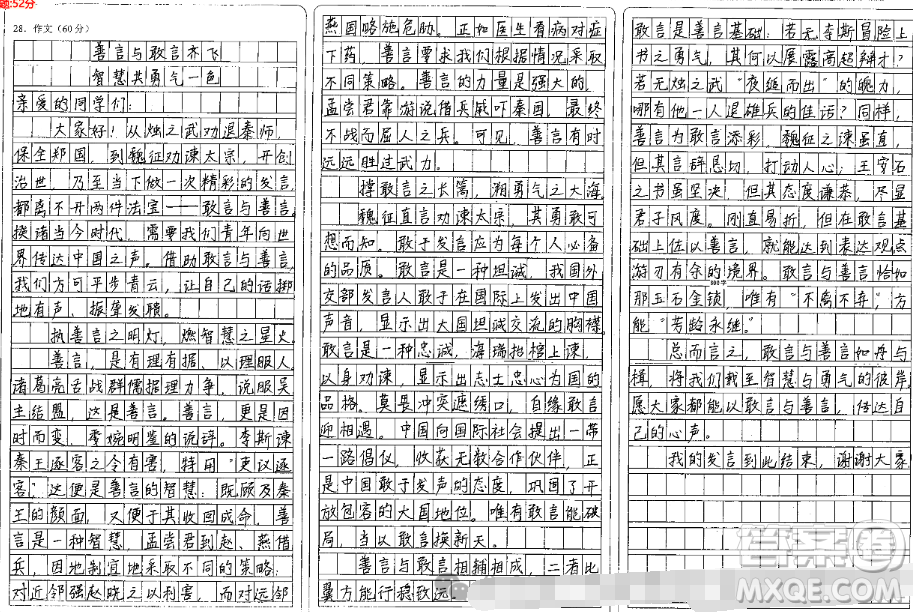 题:52分
28. 作文(60分)
善言与敢言亦飞
智慧共勇气一色
亲爱的同学们:
大家好！从烛之武劝退秦师，
保全郑国，到魏征劝谏太宗，开创
治世，乃至当下做一次精彩的发言，
都离不开两件法宝——敢言与善言。
换诸当今时代，需要我们青年向世
界传达中国之声。借助敢言与善言，
我们方可平步青云，让自己的话掷
地有声、振聋发聩。
执善言之明灯，燃智慧之星火
善言，是有理有据、以理服人。
诸葛亮舌战群儒据理力争，说服吴
主结盟，这是善言。善言，更是因
时而变，委婉明鉴的说辞。李斯谏
秦王逐客之令有害，特用“吏议逐
客”这便是善言的智慧：既顾及秦
王的颜面，又便于其收回成命，善
言是一种智慧，孟尝君到赵、燕借
兵，因地制宜地采取不同的策略：
对近邻强赵晓之以利害，而对远邻
燕国略施危胁。正如医生看病对症
下药，善言要求我们根据情况采取
不同策略。善言的力量是强大的，
孟尝君靠游说借兵威吓秦国，最终
不战而屈人之兵。可见，善言有时
远远胜过武力。
撑敢言之长篙，溯勇气之大海
魏征直言劝谏太宗，其勇敢可
想而知。敢于发言应为每个人必备
的品质。敢言是一种坦诚，我国外
交部发言人敢于在国际上发出中国
声音，显示出大国坦诚交流的胸襟。
敢言是一种忠诚，海瑞抬棺上谏，
以身劝谏，显示出志士忠心为国的
品格。莫畏冲突遮绣口，自缘敢言
迎相遇。中国向国际社会提出一带
一路倡仪，收获无数合作伙伴，正
是中国敢于发声的态度，巩固了开
放包容的大国地位。唯有敢言能破
局，当以敢言换新天。
善言与敢言相捕相成，二者比
翼方能行稳致远。
敢言是善言基础：若无李斯冒险上
书之勇气，其何以展露高超辩才？
若无烛之武“夜缒而出”的魄力，
哪有他一人退雄兵的佳话？同样，
善言为敢言添彩。魏征之谏虽直，
但其言辞恳切，打动人心；王安石
之书虽坚决，但其态度谦恭，尽显
君子风度。刚直易折，但在敢言基
础上佐以善言，就能达到表达观点
游刃有余的境界。敢言与善言恰如
那玉石金锁，唯有“不离不弃”，方
能“芳龄永继”。
总而言之，敢言与善言如舟与
楫，将我们载至智慧与勇气的彼岸，
愿大家都能以敢言与善言，传达自
己的心声。
我的发言到此结束，谢谢大家
答案圈
MXQE.COM